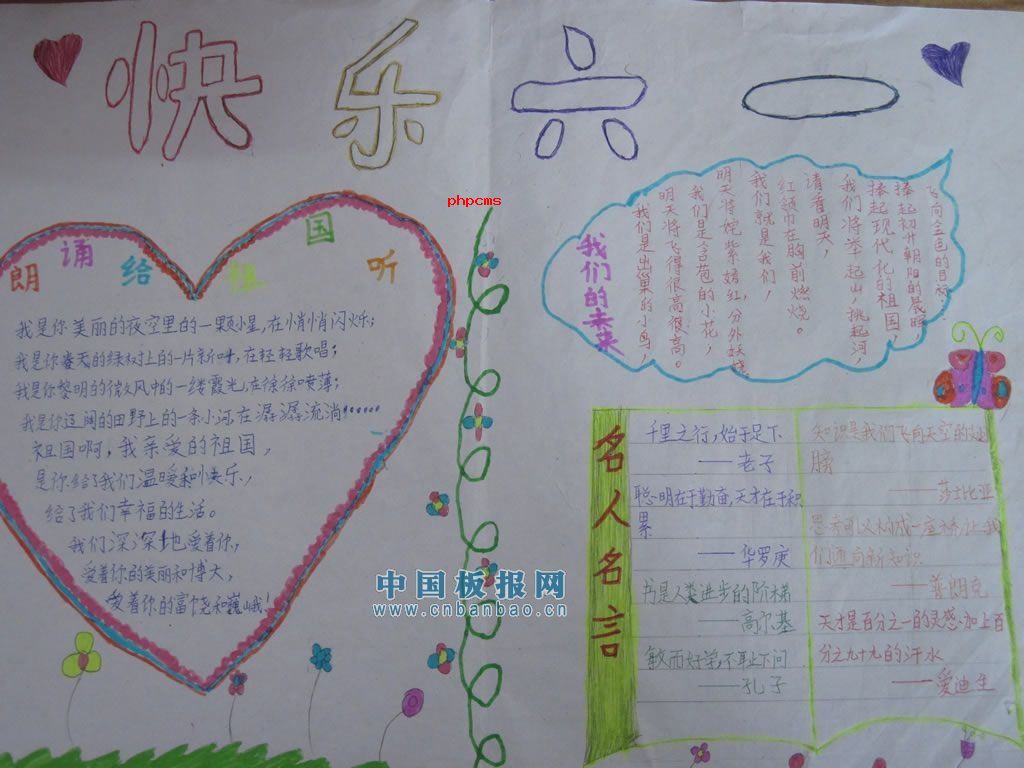 快乐六一
phpcms
朗诵给祖国听
我是你美丽的夜空里的一颗小星,在悄悄闪烁;
我是你春天的绿树上的一片新叶,在轻轻歌唱;
我是你黎明的微风中的一缕霞光,在徐徐喷薄;
我是你辽阔的田野上的一条小河,在潺潺流淌!……
祖国啊,我亲爱的祖国,
是你给了我们温暖和快乐,
给了我们幸福的生活。
我们深深地爱着你,
爱着你的美丽和博大,
爱着你的富饶和巍峨!
我们的未来
我们是出巢的小鸟,
明天将飞得很高很高。
我们是含苞的小花,
明天将姹紫嫣红,分外妖娆
我们就是我们,
红领巾在胸前燃烧。
请看明天,
我们将举起山,挑起河,
捧起现代化的祖国,
捧起初升朝阳的晨曦
飞向金色的目标
名人名言
千里之行,始于足下
——老子
聪明在于勤奋,天才在于积
累
——华罗庚
书是人类进步的阶梯
——高尔基
敏而好学,不耻下问
——孔子
知识是我们飞向天空的翅
膀
——莎士比亚
思考可以构成一座桥,让我
们通向新知识
——普朗克
天才是百分之一的灵感,加上百
分之九十九的汗水
——爱迪生
中国板报网
www.cnbanbao.cn